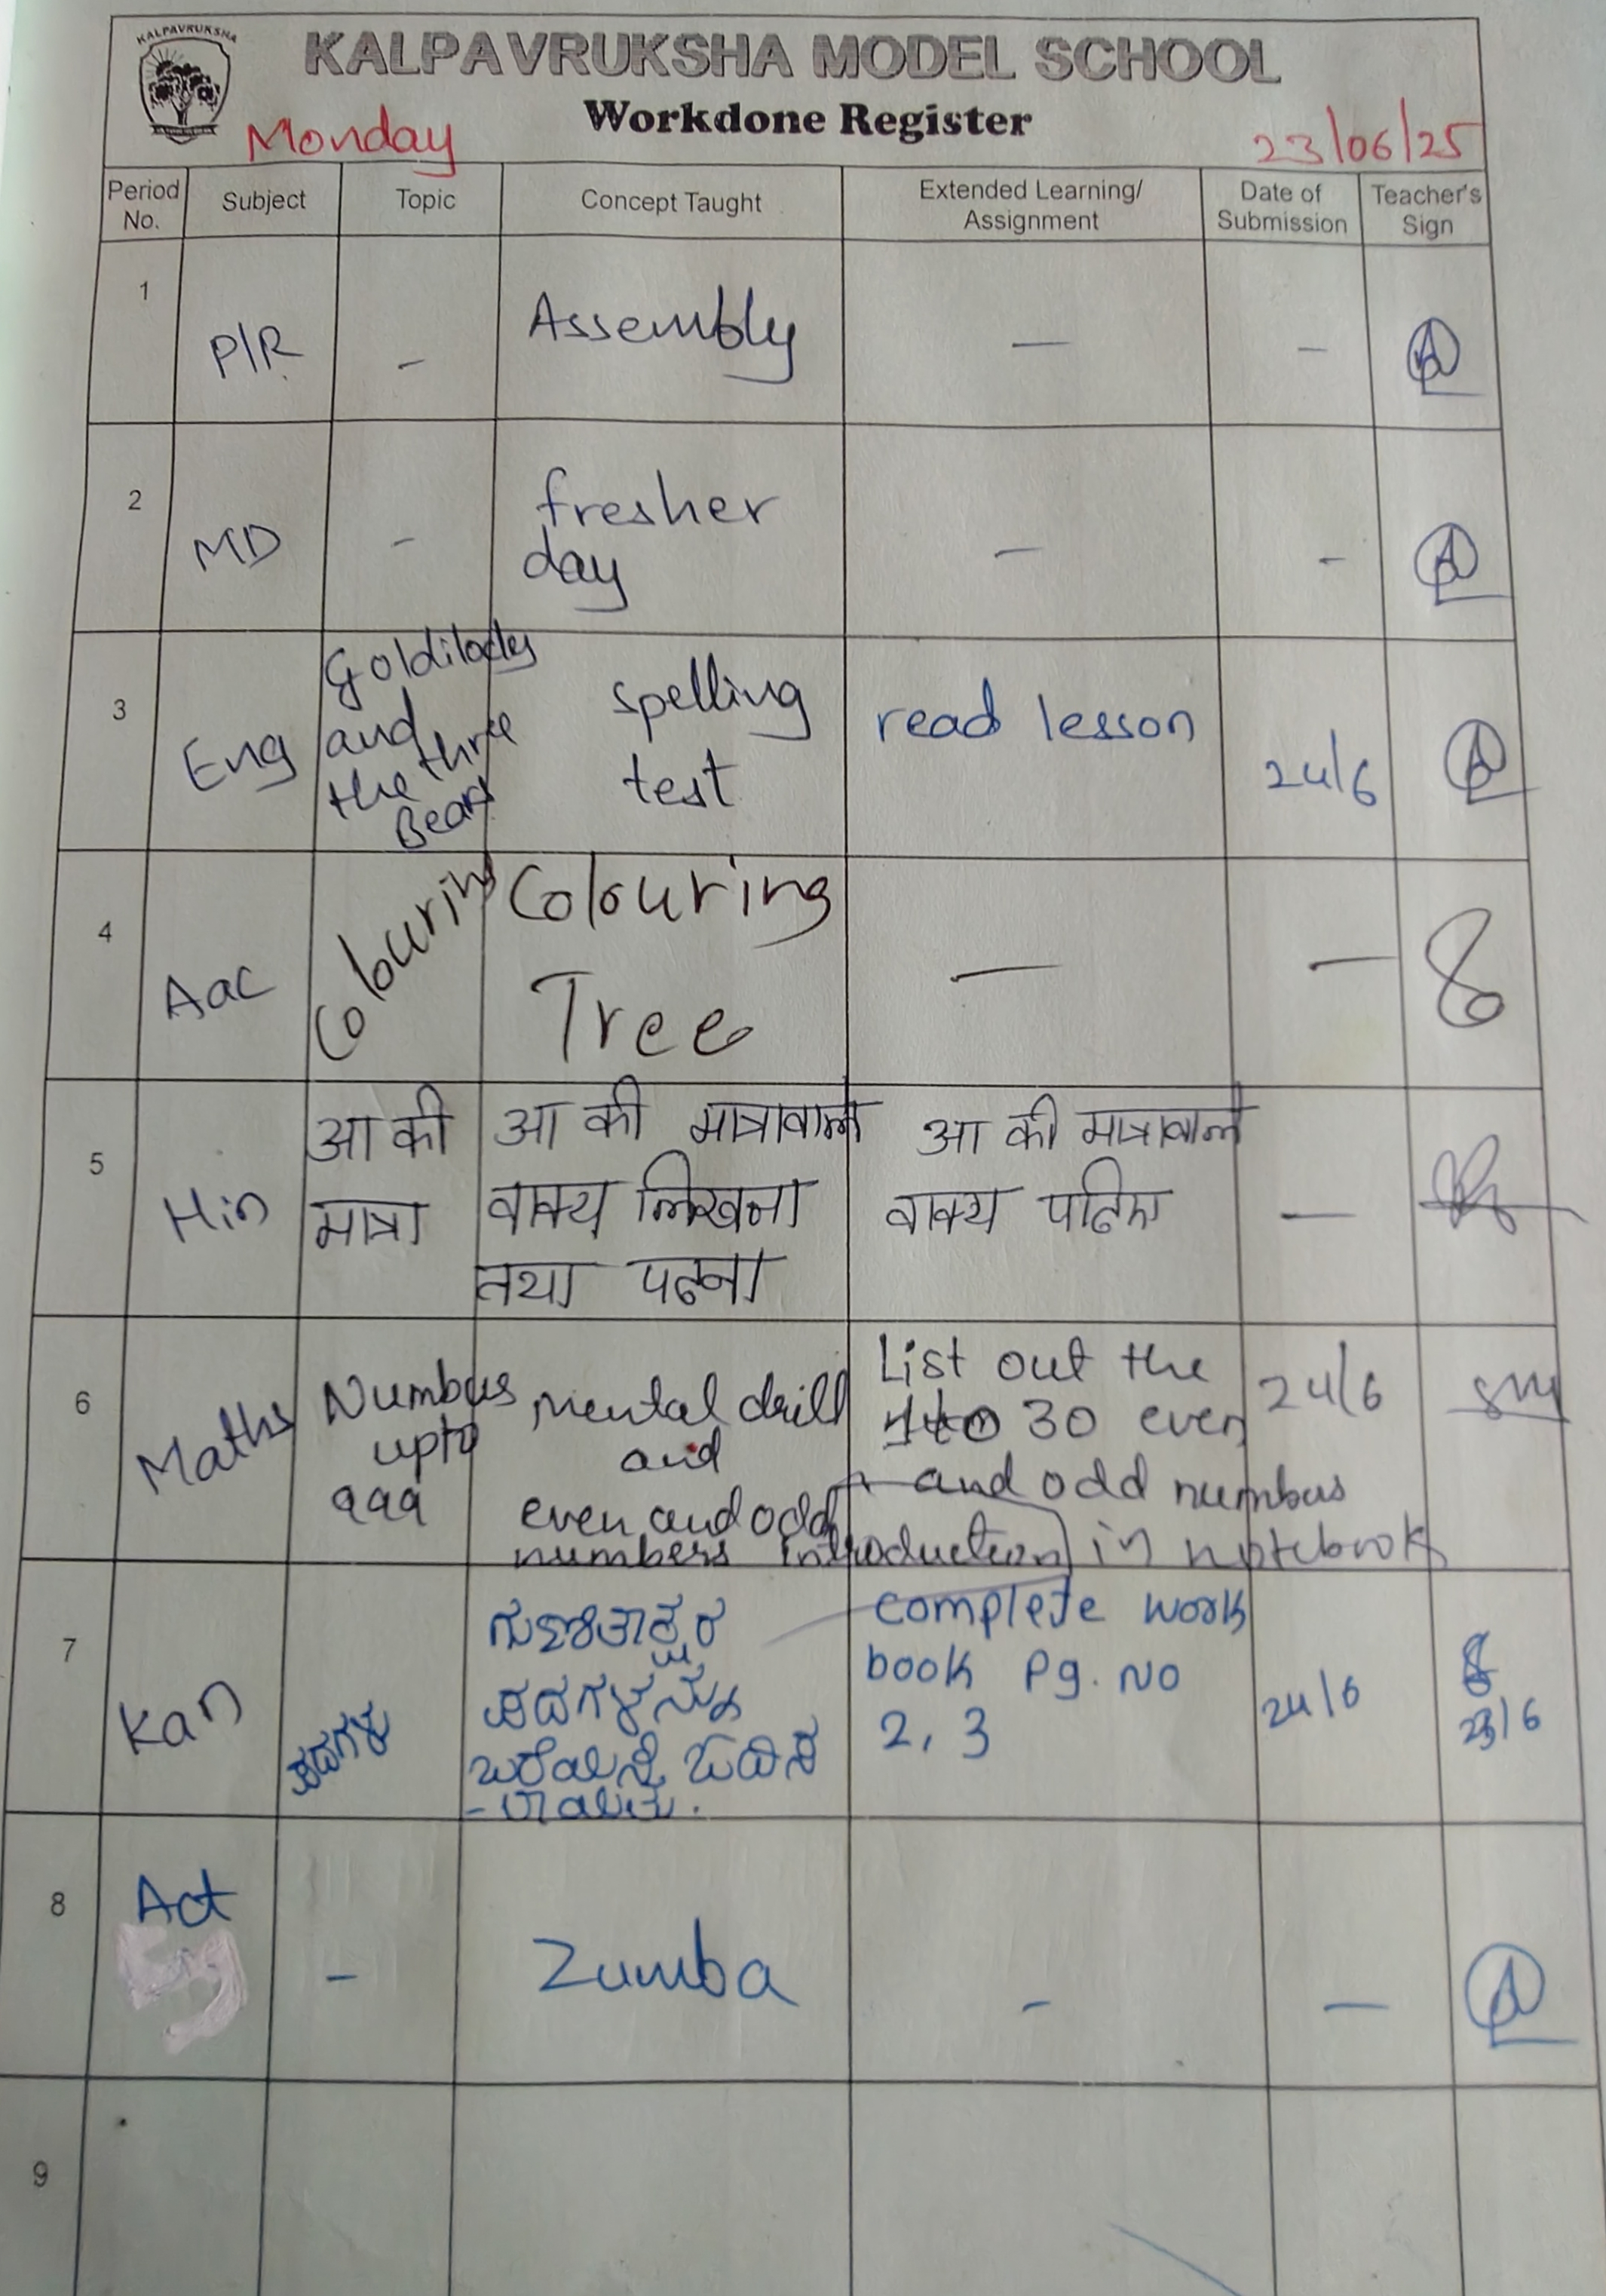 KALPAVRUKSHA
KALPAVRUKSHA MODEL SCHOOL
Workdone Register
Monday
23/06/25
Period No.
Subject
Topic
Concept Taught
Extended Learning/ Assignment
Date of Submission
Teacher's Sign
1
P/R
-
Assembly
—
–
2
MD
-
fresher
day
—
-
3
Eng
Goldilocks
and
the three
Bears
spelling
test
read lesson
24/6
4
Aac
Colouring
Colouring
Tree
—
—
5
Hin
आ की
मात्रा
आ की मात्रावाले
वाक्य लिखना
तथा पढना
आ की मात्रावाले
वाक्य पढिए
—
6
Maths
Numbers
upto
999
mental drill
and
even and odd
numbers introduction
List out the
30 even
and odd numbers
in notebook
24/6
7
Kan
ಪದಗಳು
ಗುಣಿತಾಕ್ಷರ
ಪದಗಳನ್ನು
complete work
book Pg. No
2, 3
24/6
23/6
8
Act
-
Zumba
-
—
9